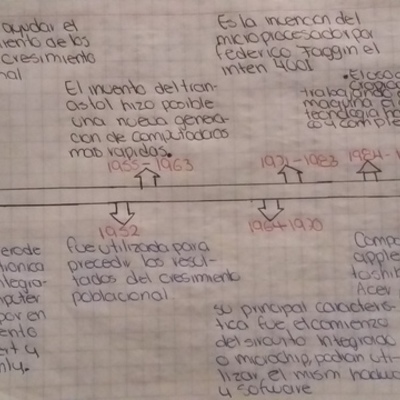 ayudar el
iento de los
cresimiento
nal
Es la invencon del
microprocesador por
federico Faggin el
inten 4001
El invento del tran-
sistol hizo posible
una nueva genera-
cion de computadoras
mas rapidas.
trabajando
maquina
tecnologia
1955-1963
1971-1983
1984-1
1952
1964-1970
erode
tronica
integra-
puter
por en
ento
y
nly.
fue utilizada para
precedir los resul-
tados del cresimiento
poblacional
su principal caracteris-
tica fue el comienzo
del sircuito integrado
o microchip, podian uti-
lizar el mism
y software
Compa
apple
toshib
Acer